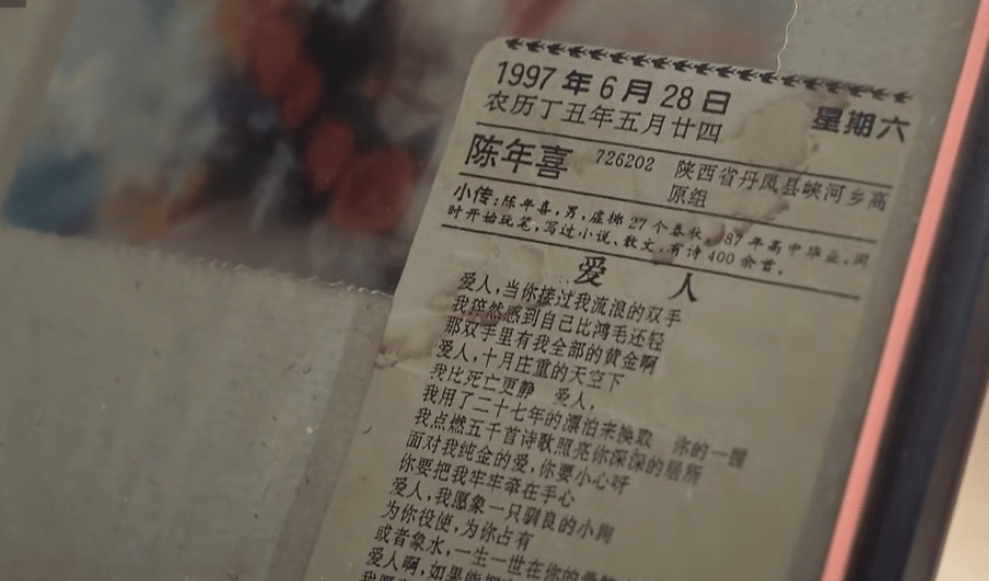 1997年6月28日 星期六
农历丁丑年五月廿四
陈年喜 726202 陕西省丹凤县峡河乡高
原组
小传:陈年喜,男,虚掷27个春秋,87年高中毕业,同
时开始玩笔,写过小说、散文,有诗400余首。
爱 人
爱人,当你接过我流浪的双手
我猝然感到自己比鸿毛还轻
那双手里有我全部的黄金啊
爱人,十月庄重的天空下
我比死亡更静 爱人,
我用了二十七年的漂泊来换取 你的一握
我点燃五千首诗歌照亮你深深的居所
面对我纯金的爱,你要小心呀
你要把我牢牢牵在手心
爱人,我愿象一只驯良的小狗
为你役使,为你占有
或者象水,一生一世在你的
爱人啊,如果能